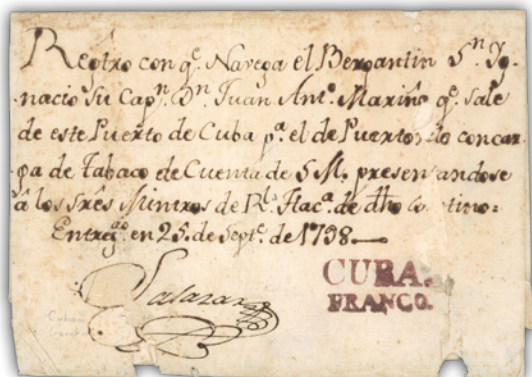 Regtro con qe. Navega el Bergantin Sn. Yg-
nacio su Capn. Dn. Juan Anto. Mariño qe. sale
de este Puerto de Cuba pa. el de Puerto con car-
ga de Tabaco de Cuenta de S M. presentandose
â los Sres Mintros de Rl. Hacda. de dho
Entregdo. en 25. de Septe. de 1798.
Salazar
CUBA.
FRANCO.